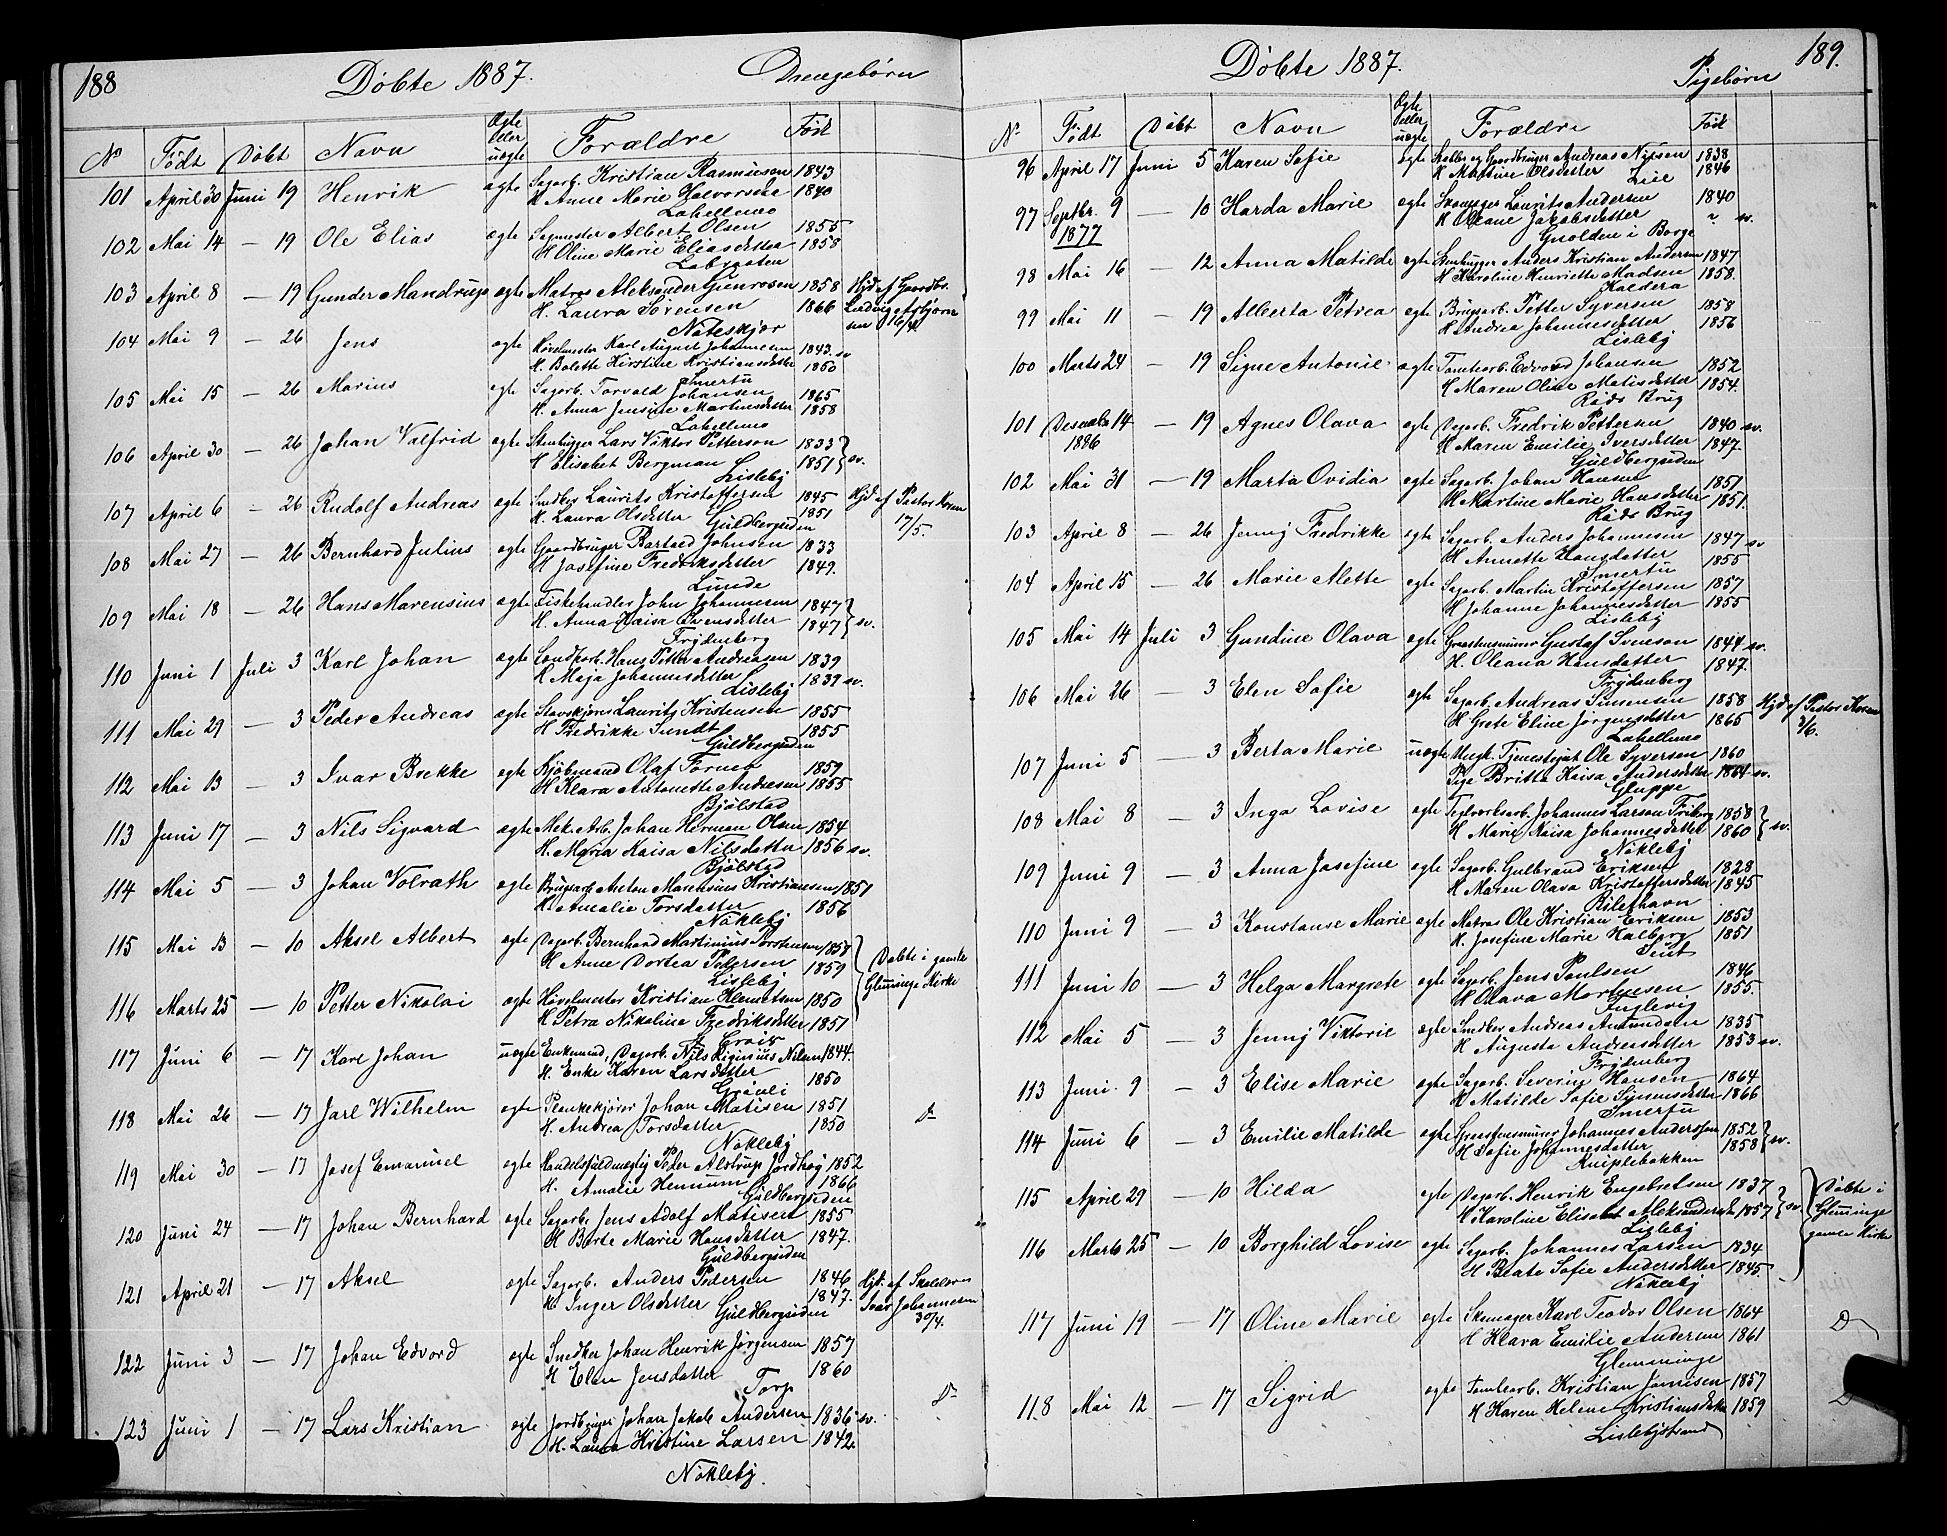 188
Döbte 1887.
Drengebørn
No
Födt
Döbt
Navn
Ægte eller uægte
Forældre
Födt
101 April 30 Juni 19 Henrik ægte Sagarb. Kristian Rasmusen 1843
H Anne Marie Halvorsen 1840
Lahellemo
102 Mai 14 — 19 Ole Elias ægte Sagmester Albert Olsen 1855
H Oline Marie Eliasdatter 1858
103 April 8 — 19 Gunder Mandrup ægte Matros Aleksander Gunrosen 1858 Hjd af Gaardbr.
H. Laura Sörensen 1866 Ludvig Asbjörn
sen 16/4
Nateskjær
104 Mai 9 — 26 Jens ægte Hövelmester Karl August Johannesen 1843 sv
H. Bolette Kirstine Kristiansdatter 1850
Smertu
105 Mai 15 — 26 Marius ægte Sagarb. Torvald Johansen 1865
H. Anna Jensine Martinsdatter 1858
Lahellemo
106 April 30 — 26 Johan Valfrid ægte Stenhugger Lars Viktor Petterson 1833
H Elisabet Bergman 1851 sv.
Lisleby
107 April 6 — 26 Rudolf Andreas ægte Snedker Laurits Kristoffersen 1845 Hjd af Pastor Koren
H. Laura Olsdatter 1851 17/5.
Guldbergsiden
108 Mai 27 — 26 Bernhard Julius ægte Gaardbruger Bertaed Johnsen 1833
H Josefine Fredriksdatter 1849.
Lunde
109 Mai 18 — 26 Hans Marensius ægte Fiskehandler John Johannesen 1847
H. Anna Kaisa Evensdatter 1847 sv.
Frydenberg
110 Juni 1 Juli 3 Karl Johan ægte Landharb. Hans Petter Andreasen 1839
H Maja Johannesdatter 1839 sv.
Lisleby
111 Mai 29 — 3 Peder Andreas ægte Stavskjører Laurits Kristensen 1855
H Fredrikke Sundt 1855
Guldbergsiden
112 Mai 13 3 Ivar Brekke ægte Kjöbmand Olaf Forneb 1859
H Klara Antonette Andresen 1855
Bjölstad
113 Juni 17 — 3 Nils Sigvard ægte Mek. Arb. Johan Herman Olsen 1854
H. Maria Kaisa Nilsdatter 1856 sv.
Bjölstad
114 Mai 5 — 3 Johan Volrath ægte Brugsarb Anton Marensius Kristiansen 1851
H. Amalie Torsdatter 1856
Nökleby
115 Mai 13 — 10 Aksel Albert ægte Dagarb. Bernhard Martinius Torstensen 1857 Döbte i gamle
H Anne Dortea Pedersen 1859 Glemminge Kirke
Lisleby
116 Marts 25 — 10 Petter Nikolai ægte Hövelmester Kristian Klemetsen 1850
H Petra Nikoline Fredriksdatter 1851
117 Juni 6 — 17 Karl Johan uægte Enkemand, Dagarb. Nils Higinius Nilsen 1844.
H. Enke Karen Larsdatter 1850
Graali
118 Mai 26 — 17 Jarl Wilhelm ægte Plankekjörer Johan Matisen 1851 Do
H. Andrea Torsdatter 1850
Nökleby
119 Mai 30 — 17 Josef Emanuel ægte Handelsfuldmægtig Peder Alstrup Jordhøy 1852
H. Amalie Hennum 1866
Guldbergsiden
120 Juni 24 — 17 Johan Bernhard ægte Sagarb. Jens Adolf Matisen 1855
H Berte Marie Hansdatter 1847.
Guldbergsiden
121 April 21 — 17 Aksel ægte Sagarb. Anders Pedersen 1846 Hjd. af Skolelærer
H. Inger Olsdatter 1847. Ivar Johannesen
Guldbergsiden 30/4.
122 Juni 3 — 17 Johan Edvord ægte Snedker Johan Henrik Jørgensen 1857
H Elen Jensdatter 1860
Torp Do
123 Juni 1 — 17 Lars Kristian ægte Jordbruger Johan Jakob Andersen 1836 sv.
H. Laura Kristine Larsen 1842.
Nökleby.
189.
Döbte 1887.
Pigebörn
No
Födt
Döbt
Navn
Ægte eller uægte
Forældre
Födt
96 April 17 Juni 5 Karen Sofie ægte Gaardbruger Andreas Nilsen 1838
H Martine Olsdatter 1846
Lie
97 Septbr. 9 — 10 Harda Marie ægte Skomager Laurits Andersen 1840
1877 H Oleane Jakobsdatter sv.
Gnolden i Borge
98 Mai 16 — 12 Anna Matilde ægte Stenhugger Anders Kristian Andersen 1847
H Karoline Henriette Madsen 1858.
Kaldera
99 Mai 11 — 19 Alberta Petrea ægte Brugsarb. Petter Syversen 1858
H Andrea Johannesdatter 1856
Lisleby
100 Marts 24 — 19 Signe Antonie ægte Tomtearb. Edvord Johansen 1852
H Maren Oline Matisdatter 1854.
Råds Brug
101 Desembr 14 — 19 Agnes Olava ægte Dagarb. Fredrik Pettersen 1840 sv.
1886 H Maren Emilie Iversdatter 1847.
Guldbergsiden
102 Mai 31 — 19 Marta Ovidia ægte Sagarb. Johan Hansen 1851
H Martine Marie Hansdatter 1851.
Råds Brug
103 April 8 — 26 Jenny Fredrikke ægte Sagarb. Anders Johannesen 1847 sv
H Annette Hansdatter 1855
Smertu
104 April 15 — 26 Marie Alette ægte Sagarb. Martin Kristoffersen 1857
H Johanne Johannesdatter 1855
Lisleby
105 Mai 14 Juli 3 Gundine Olava ægte Graastensmurer Gustaf Svenson 1844 sv.
H. Oleana Hansdatter 1847.
Frydenberg
106 Mai 26 — 3 Elen Sofie ægte Sagarb. Andreas Simensen 1858 Hjd af Pastor Koren
H Grete Eline Jørgensdatter 1865 3/6.
Lahellemo
107 Juni 5 — 3 Berta Marie uægte Ungk. Tjenestegut Ole Syversen 1860
Pige Britta Kaisa Andersdatter 1864 sv.
Gluppe
108 Mai 8 — 3 Inga Lovise ægte Teglverksarb. Johannes Larson Friberg 1858
H Marie Kaisa Johannesdatter 1860 sv.
Nökleby
109 Juni 9 — 3 Anna Josefine ægte Sagarb. Gulbrand Eriksen 1828
H Maren Olava Kristoffersdatter 1845
110 Juni 9 — 3 Konstanse Marie ægte Matros Ole Kristian Eriksen 1853
H. Josefine Marie Halberg 1851
111 Juni 10 — 3 Helga Margrete ægte Sagarb. Jens Paulsen 1846
H Olava Mortensen 1855.
Fuglevig
112 Mai 5 — 3 Jenny Viktorie ægte Snedker Andreas Amundsen 1835
H Augusta Andreasdatter 1853 sv.
Frydenberg
113 Juni 9 — 3 Elise Marie ægte Sagarb. Severin Hansen 1864
H Matilde Sofie Simensdatter 1866
Smertu
114 Juni 6 — 3 Emilie Matilde ægte Graastensmurer Johannes Andersson 1852
H Sofie Johannesdatter 1858 sv.
Kniplebakken
115 April 29 — 10 Hilda ægte Dagarb. Henrik Engebretsen 1837 Döbte i
H Karoline Elisabet Aleksandersdr 1857 sv. Glemminge
Lisleby gamle Kirke
116 Marts 25 — 10 Borghild Lovise ægte Sagarb. Johannes Larsen 1834
H Beate Sofie Andersdatter 1845.
Nökleby
117 Juni 19 — 17 Oline Marie ægte Skomager Karl Teodor Olsen 1864 Do
H Klara Emilie Andersen 1861
Glemminge
118 Mai 12 — 17 Sigrid ægte Tomtearb. Kristian Jamisen 1857
H Karen Helene Kristiansdatter 1859
Lislebystrand